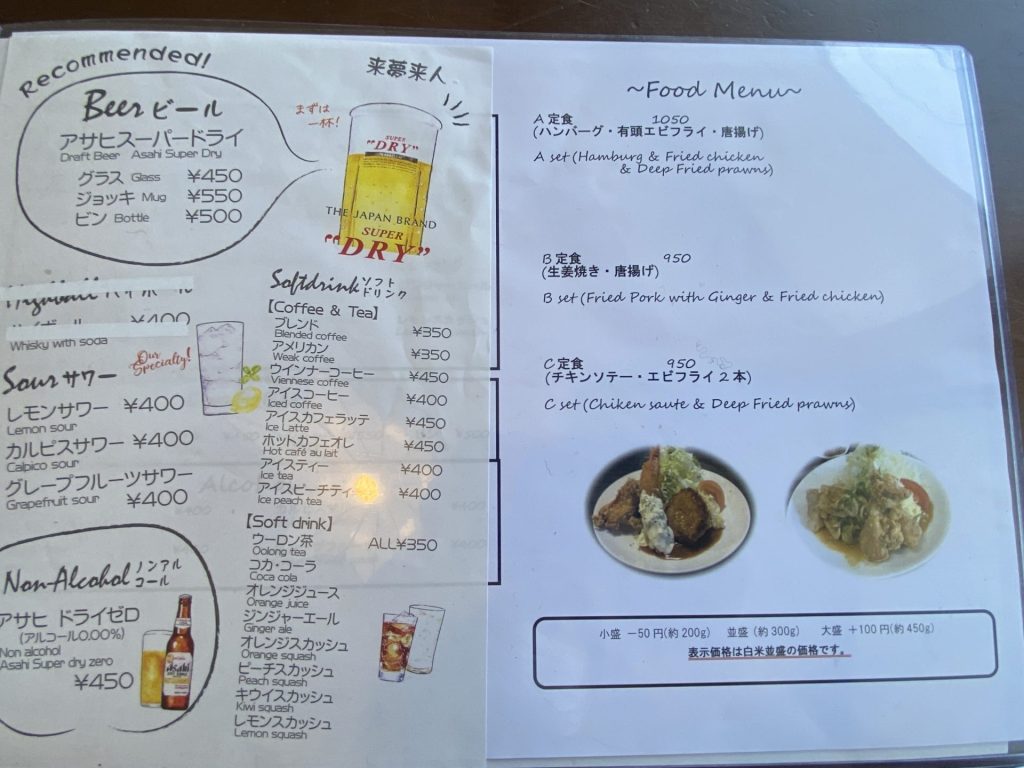 Recommended!
来夢来人
Beer ビール
まずは
一杯!
アサヒスーパードライ
Draft Beer Asahi Super Dry
グラス Glass ¥450
ジョッキ Mug ¥550
ビン Bottle ¥500
SUPER
"DRY"
THE JAPAN BRAND
SUPER
"DRY"
¥400
Whisky with soda
Our
Specialty!
Sour サワー
レモンサワー ¥400
Lemon sour
カルピスサワー ¥400
Calpico sour
グレープフルーツサワー
Grapefruit sour ¥400
Non-Alcohol ノンアル
コール
アサヒ ドライゼロ
(アルコール0.00%)
Non alcohol
Asahi Super dry zero
¥450
Asahi
Softdrink ソフト
ドリンク
【Coffee & Tea】
ブレンド ¥350
Blended coffee
アメリカン ¥350
Weak coffee
ウインナーコーヒー ¥450
Viennese coffee
アイスコーヒー ¥400
Iced coffee
アイスカフェラッテ ¥450
Ice Latte
ホットカフェオレ ¥450
Hot café au lait
アイスティー ¥400
Ice tea
アイスピーチティー ¥400
Ice peach tea
【Soft drink】
ウーロン茶 ALL¥350
Oolong tea
コカ・コーラ
Coca cola
オレンジジュース
Orange juice
ジンジャーエール
Ginger ale
オレンジスカッシュ
Orange squash
ピーチスカッシュ
Peach squash
キウイスカッシュ
Kiwi squash
レモンスカッシュ
Lemon squash
~Food Menu~
A定食 1050
(ハンバーグ・有頭エビフライ・唐揚げ)
A set (Hamburg & Fried chicken
& Deep Fried prawns)
B定食 950
(生姜焼き・唐揚げ)
B set (Fried Pork with Ginger & Fried chicken)
C定食 950
(チキンソテー・エビフライ2本)
C set (Chiken saute & Deep Fried prawns)
小盛 −50円(約200g) 並盛 (約300g) 大盛 +100円(約450g)
表示価格は白米並盛の価格です。